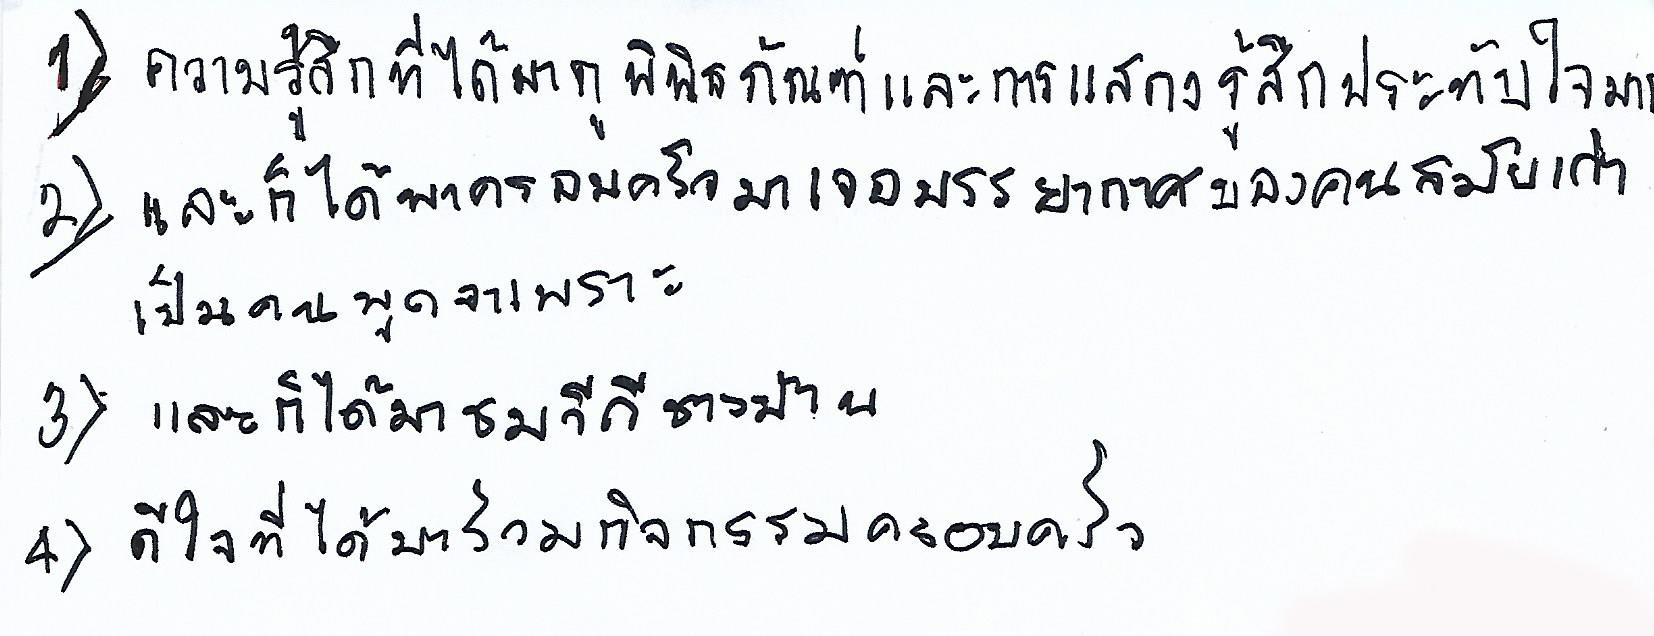 1) ความรู้สึกที่ได้มาดูพิพิธภัณฑ์และการแสดงรู้สึกประทับใจมาก
2) และก็ได้พาครอบครัวมาเจอบรรยากาศของคนสมัยเก่า
เป็นคนพูดจาเพราะ
3) และก็ได้มาชมวิถีชาวบ้าน
4) ดีใจที่ได้มาร่วมกิจกรรมครอบครัว